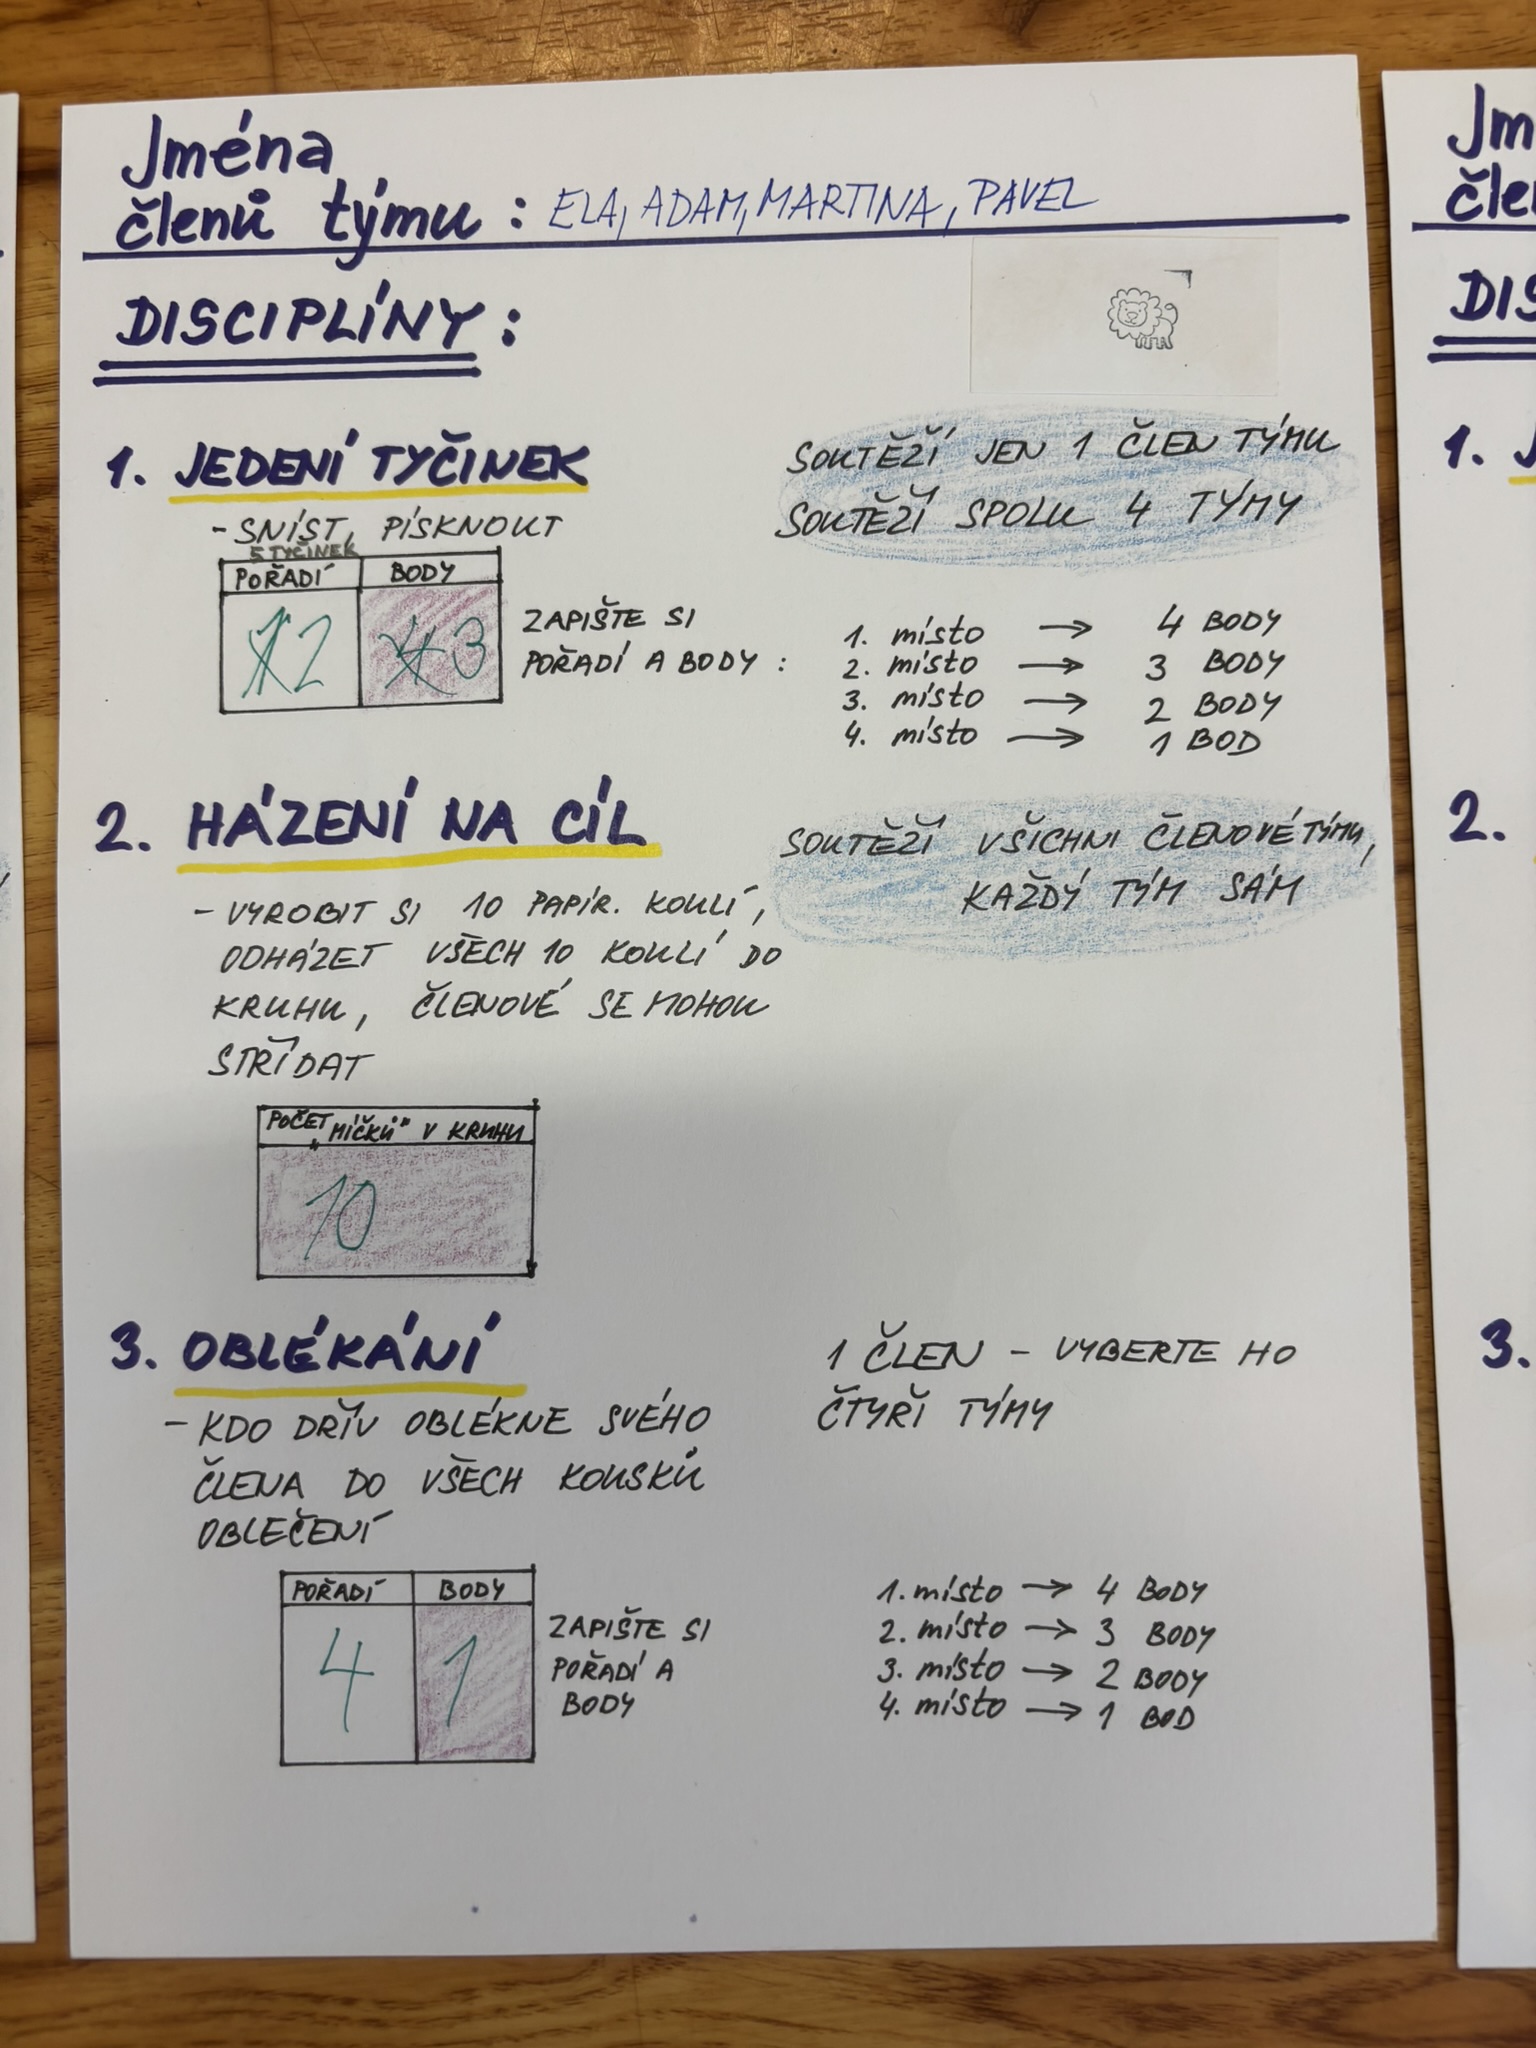 Jména
členů týmu : ELA, ADAM, MARTINA, PAVEL
DISCIPLÍNY :
1. JEDENÍ TYČINEK
SOUTĚŽÍ JEN 1 ČLEN TÝMU
SOUTĚŽÍ SPOLU 4 TÝMY
- SNÍST, PÍSKNOUT
5 TYČINEK
POŘADÍ BODY
2 3
ZAPIŠTE SI
POŘADÍ A BODY :
1. místo → 4 BODY
2. místo → 3 BODY
3. místo → 2 BODY
4. místo → 1 BOD
2. HÁZENÍ NA CÍL
SOUTĚŽÍ VŠICHNI ČLENOVÉ TÝMU,
KAŽDÝ TÝM SÁM
- VYROBIT SI 10 PAPÍR. KOULÍ,
ODHÁZET VŠECH 10 KOULÍ DO
KRUHU, ČLENOVÉ SE MOHOU
STŘÍDAT
POČET „MÍČKŮ" V KRUHU
10
3. OBLÉKÁNÍ
1 ČLEN - VYBERTE HO
ČTYŘI TÝMY
- KDO DŘÍV OBLÉKNE SVÉHO
ČLENA DO VŠECH KOUSKŮ
OBLEČENÍ
POŘADÍ BODY
4 1
ZAPIŠTE SI
POŘADÍ A
BODY
1. místo → 4 BODY
2. místo → 3 BODY
3. místo → 2 BODY
4. místo → 1 BOD
1.
2.
3.